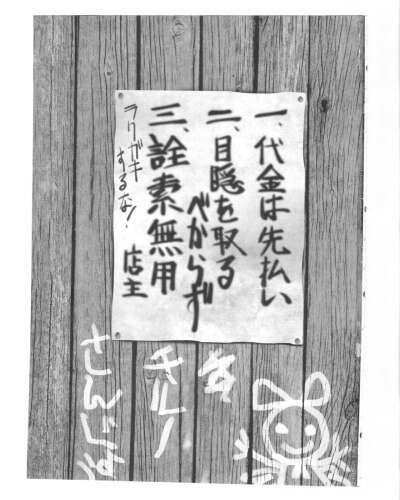 一、代金は先払い
二、目隠を取る
べからず
三、詮索無用
ラクガキ
するな！
店主
チルノ
さんじょ